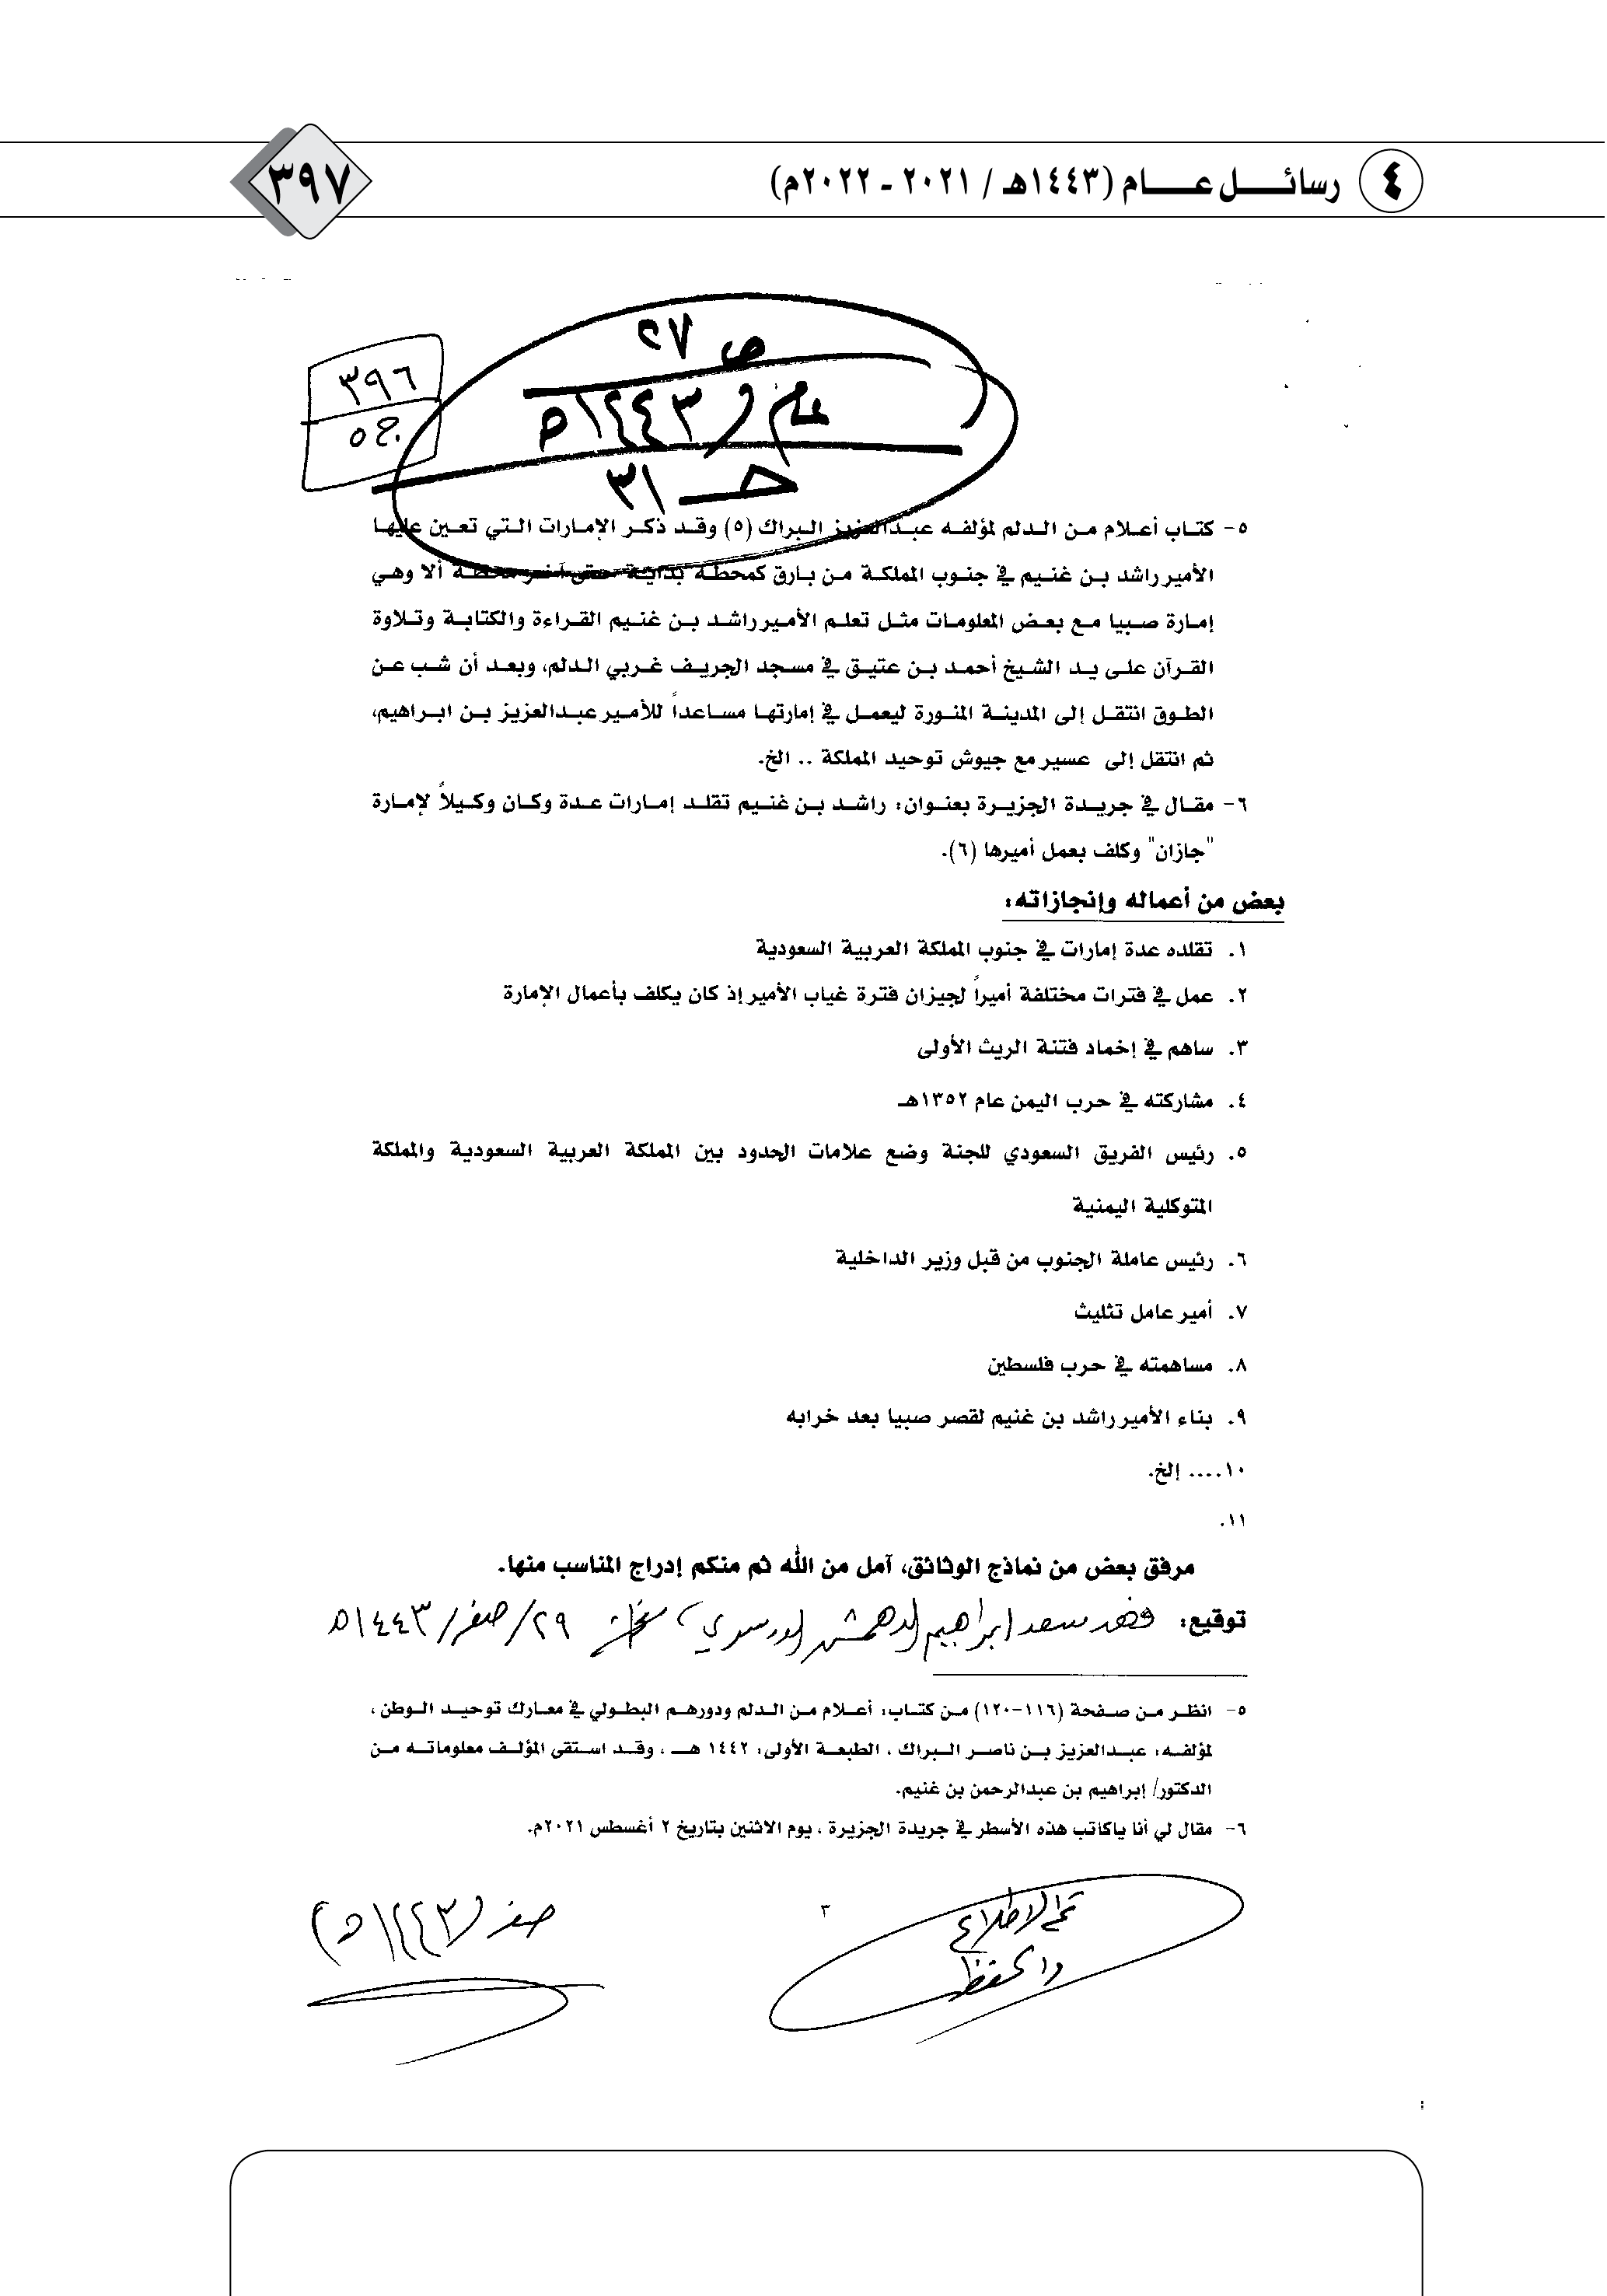 ٤ رسائل عام (١٤٤٣هـ / ٢٠٢١ - ٢٠٢٢م)
٣٩٧
ص ٢٧
عام ١٤٤٣هـ
حـ ٣١
٣٩٦
٥ج
٥- كتاب أعلام من الدلم لمؤلفه عبدالعزيز البراك (٥) وقد ذكر الإمارات التي تعين عليها
الأمير راشد بن غنيم في جنوب المملكة من بارق كمحطة بداية حتى آخر محطة ألا وهي
إمارة صبيا مع بعض المعلومات مثل تعلم الأمير راشد بن غنيم القراءة والكتابة وتلاوة
القرآن على يد الشيخ أحمد بن عتيق في مسجد الجريف غربي الدلم، وبعد أن شب عن
الطوق انتقل إلى المدينة المنورة ليعمل في إمارتها مساعداً للأمير عبدالعزيز بن ابراهيم،
ثم انتقل إلى عسير مع جيوش توحيد المملكة .. الخ.
٦- مقال في جريدة الجزيرة بعنوان: راشد بن غنيم تقلد إمارات عدة وكان وكيلاً لإمارة
"جازان" وكلف بعمل أميرها (٦).
بعض من أعماله وإنجازاته:
١. تقلده عدة إمارات في جنوب المملكة العربية السعودية
٢. عمل في فترات مختلفة أميراً لجيزان فترة غياب الأمير إذ كان يكلف بأعمال الإمارة
٣. ساهم في إخماد فتنة الريث الأولى
٤. مشاركته في حرب اليمن عام ١٣٥٢هـ
٥. رئيس الفريق السعودي للجنة وضع علامات الحدود بين المملكة العربية السعودية والمملكة
المتوكلية اليمنية
٦. رئيس عاملة الجنوب من قبل وزير الداخلية
٧. أمير عامل تثليث
٨. مساهمته في حرب فلسطين
٩. بناء الأمير راشد بن غنيم لقصر صبيا بعد خرابه
١٠.... إلخ.
١١.
مرفق بعض من نماذج الوثائق، آمل من الله ثم منكم إدراج المناسب منها.
توقيع: فهد سعد ابراهيم الدهمش الدوسري، ٢٩/صفر/١٤٤٣هـ
٥- انظر من صفحة (١١٦-١٢٠) من كتاب: أعلام من الدلم ودورهم البطولي في معارك توحيد الوطن ،
لمؤلفه: عبدالعزيز بن ناصر البراك ، الطبعة الأولى: ١٤٤٢ هـ ، وقد استقى المؤلف معلوماته من
الدكتور/ إبراهيم بن عبدالرحمن بن غنيم.
٦- مقال لي أنا ياكاتب هذه الأسطر في جريدة الجزيرة ، يوم الاثنين بتاريخ ٢ أغسطس ٢٠٢١م.
٣
تم الاطلاع
والحفظ
صفر (١٤٤٣هـ)